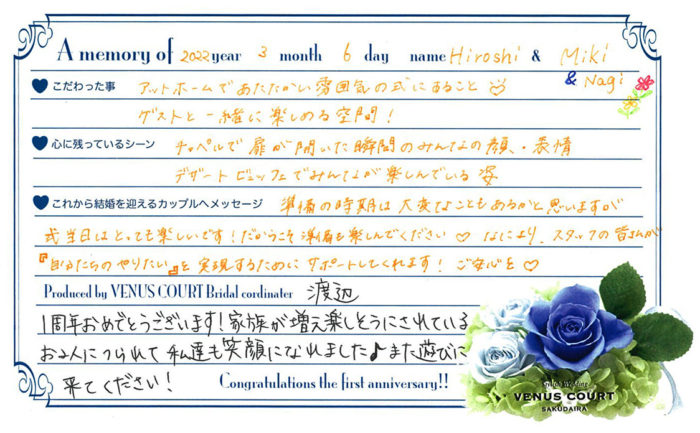 A memory of 2022 year 3 month 6 day name Hiroshi & Miki
& Nagi
こだわった事 アットホームであたたかい雰囲気の式にすること♡
ゲストと一緒に楽しめる空間!
心に残っているシーン チャペルで扉が開いた瞬間のみんなの顔、表情
デザートビュッフェでみんなが楽しんでいる姿
これから結婚を迎えるカップルへメッセージ 準備の時期は大変なこともあるかと思いますが
式当日はとっても楽しいです!だからこそ準備も楽しんでください♡ なにより、スタッフの皆さんが
『自分たちのやりたい』を実現するためにサポートしてくれます! ご安心を♡
Produced by VENUS COURT Bridal cordinater 渡辺
1周年おめでとうございます!家族が増え楽しそうにされている
お2人につられて私達も笑顔になれました♪また遊びに
来てください!
Congratulations the first anniversary!!
VENUS COURT
SAKUDAIRA